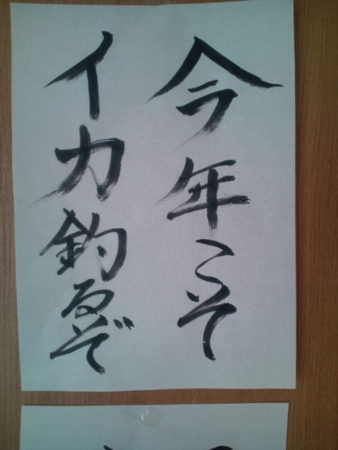 今年こそ
イカ釣るぞ